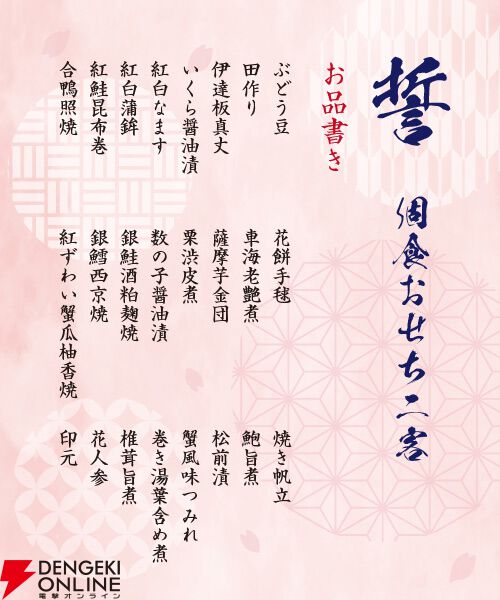 誓
個食おせち二客
お品書き
ぶどう豆
田作り
伊達板真丈
いくら醤油漬
紅白なます
紅白蒲鉾
紅鮭昆布巻
合鴨照焼
花餅手毬
車海老艶煮
薩摩芋金団
栗渋皮煮
数の子醤油漬
銀鮭酒粕麹焼
銀鱈西京焼
紅ずわい蟹爪柚香焼
焼き帆立
鮑旨煮
松前漬
蟹風味つみれ
巻き湯葉含め煮
椎茸旨煮
花人参
印元
DENGEKI
ONLINE
電撃オンライン